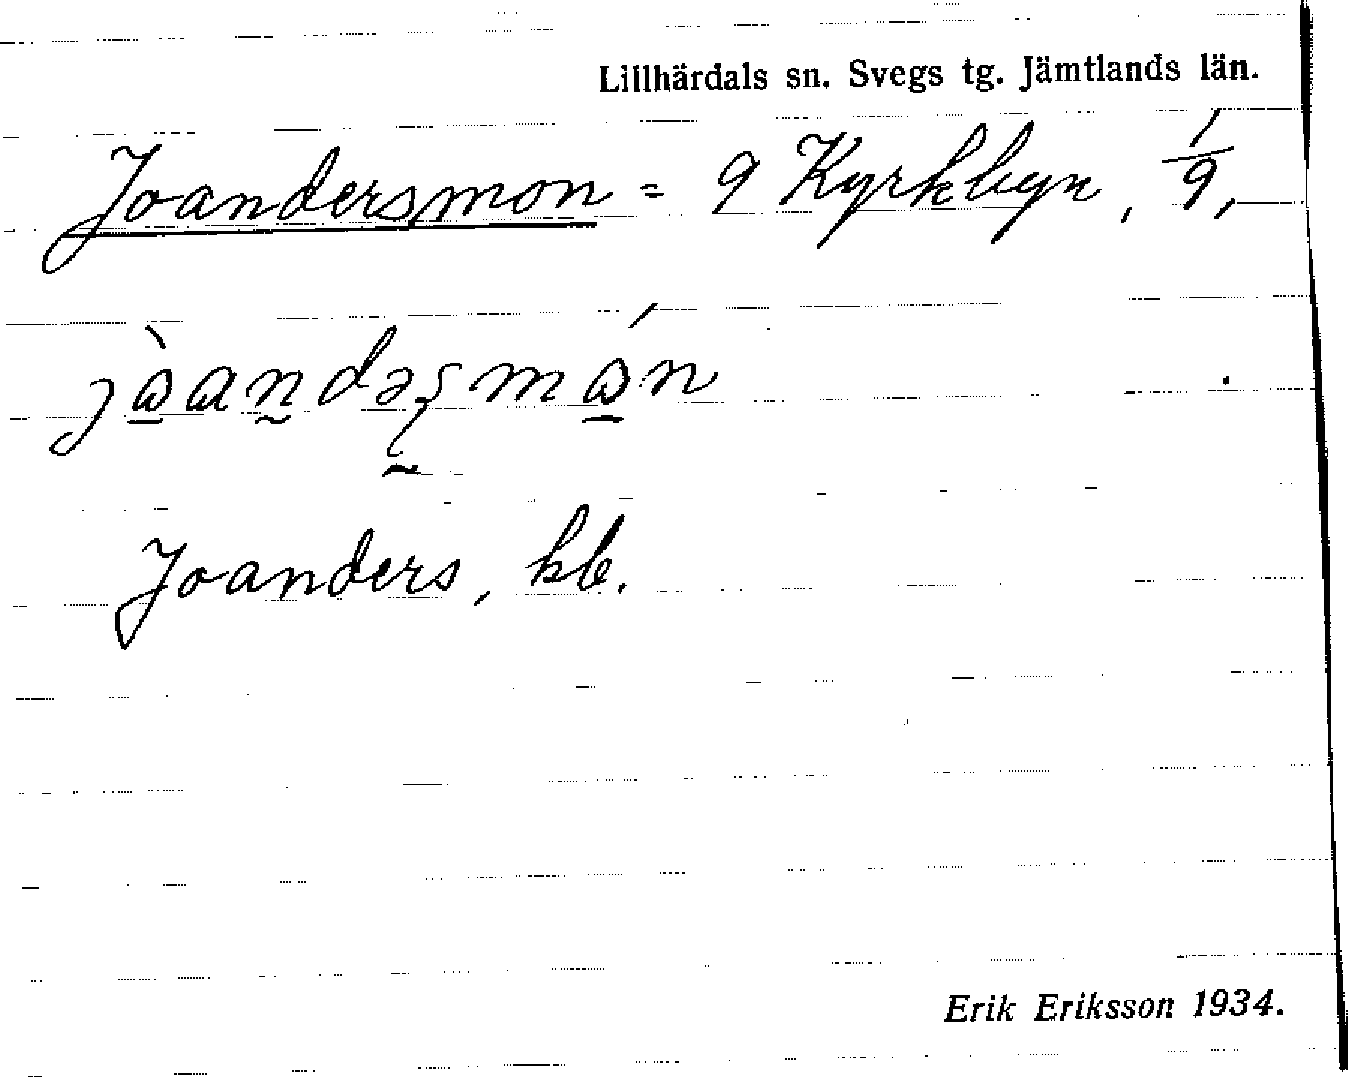 Lillhärdals sn. Svegs tg. Jämtlands län.
Joandersmon = 9 Kyrkbyn, 1/9,
Joanders, kb.
Erik Eriksson 1934.